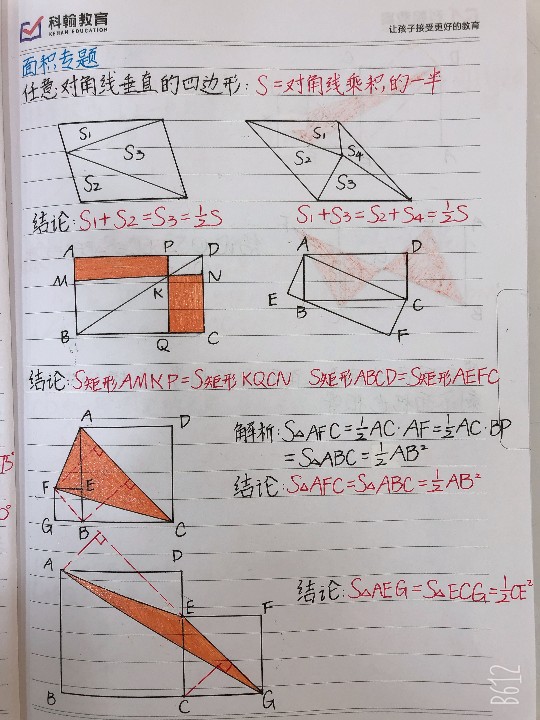 科翰教育
KEHAN EDUCATION
让孩子接受更好的教育
面积专题
任意对角线垂直的四边形：S=对角线乘积的一半
S1
S3
S2
S1
S2
S4
S3
结论：S1+S2=S3=½S
S1+S3=S2+S4=½S
A P D
M K N
B Q C
A D
E B C
F
结论：S矩形AMKP=S矩形KQCN S矩形ABCD=S矩形AEFC
A D
F E
G B C
解析：S△AFC=½AC·AF=½AC·BP
=S△ABC=½AB²
结论：S△AFC=S△ABC=½AB²
A D
E F
B C G
结论：S△AEG=S△ECG=½CE²
B612